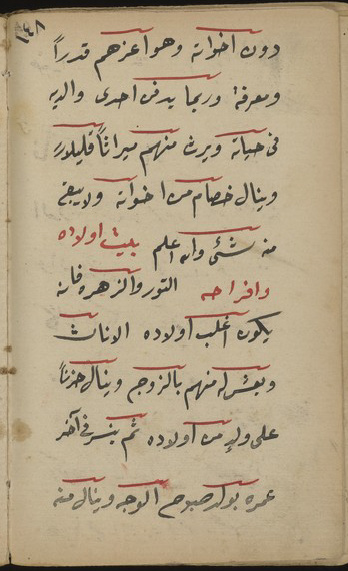 ١٤٨
دون اخواته وهو اعزهم قدراً
ومعرفة وربما يدفن احدى والديه
فى حياته ويرث منهم ميراثاً قليلا
وينال خصام من اخواته ولا يبقى
منه شئ والله اعلم بليت اولاده
وافراحه التور والزهره فانه
يكون اغلب اولاده الاناث
ويعسر له منهم بالزوج وينال حزناً
على ولد من اولاده ثم يسر فى آخر
عمره بولد صبوح الوجه وينال منه